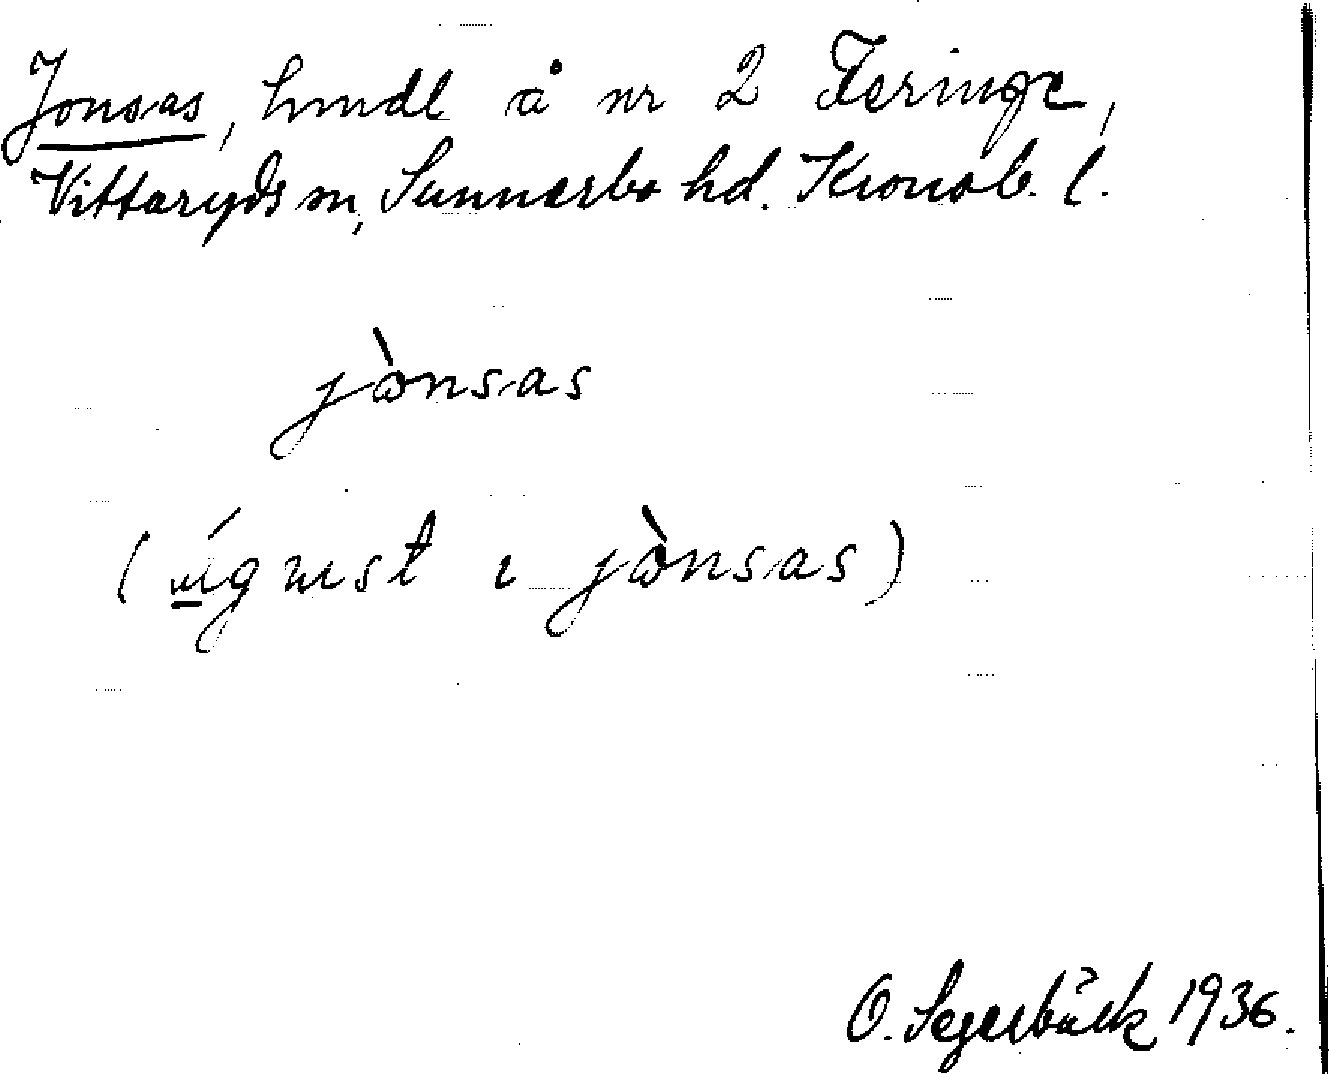 Jonsas, hmdl å nr 2 Feringe,
Vittaryds sn, Sunnerbo hd. Kronob. l.
jònsas
(águst ı jònsas)
O. Segerbäck 1936.